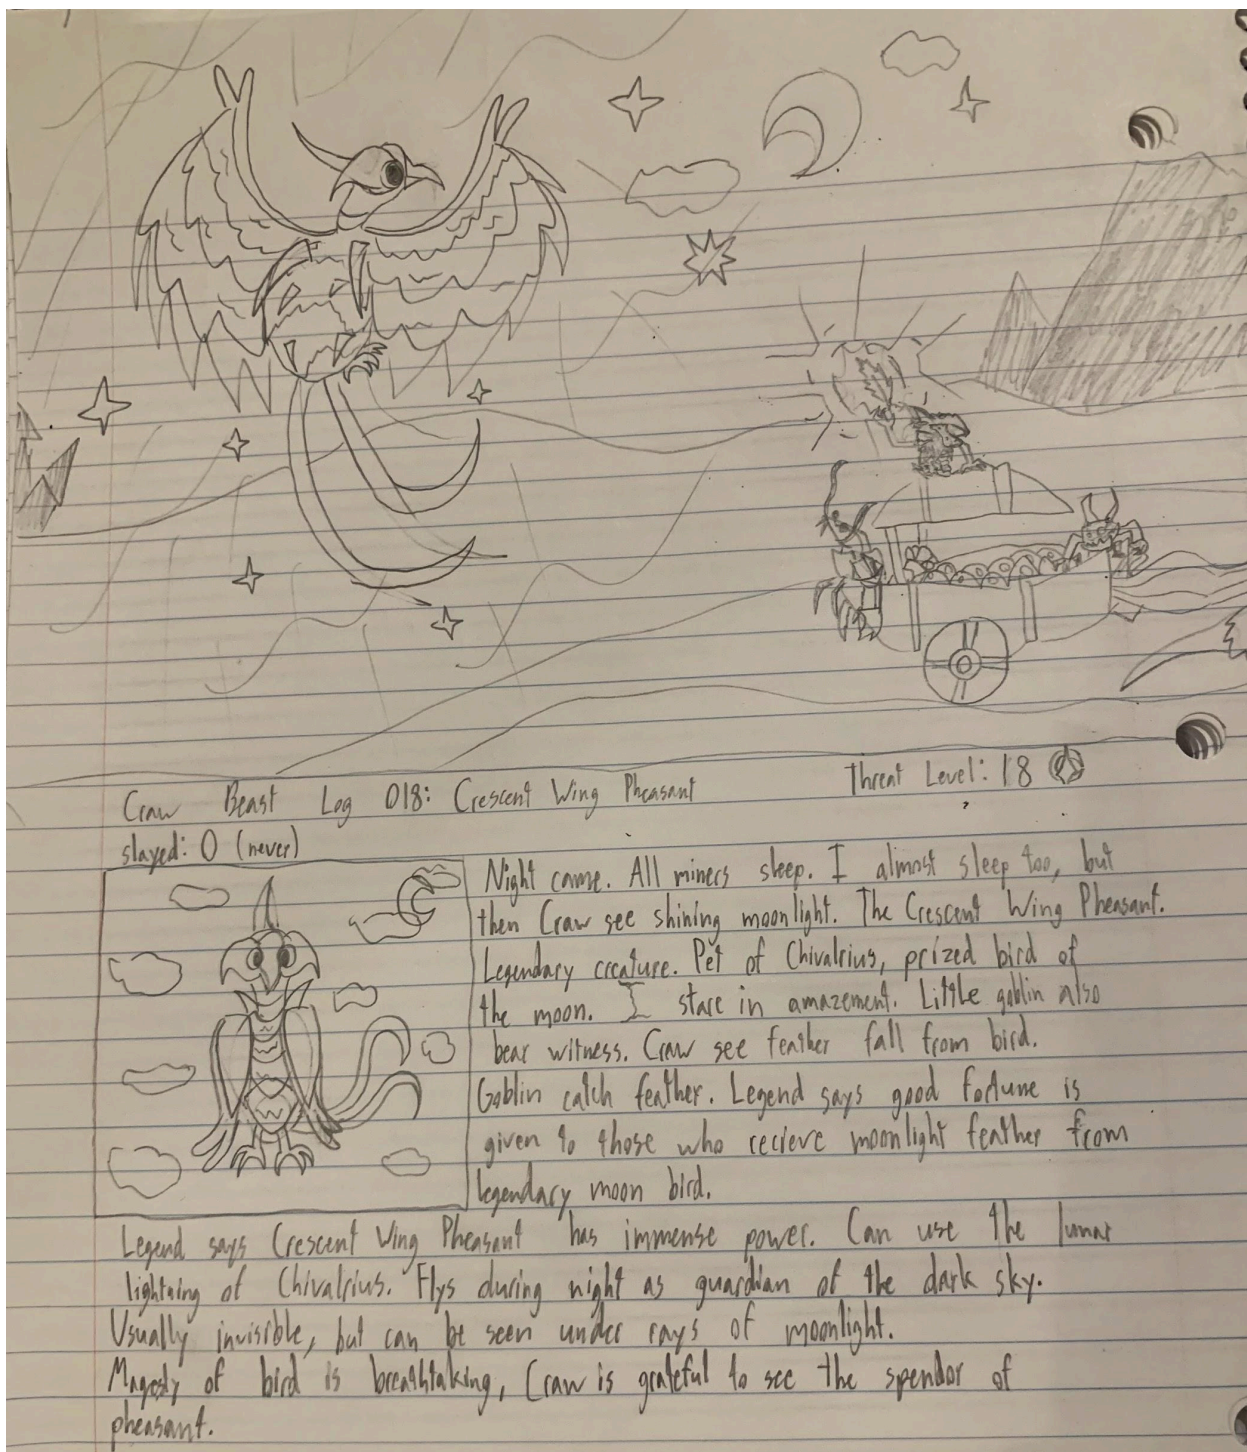 Craw Beast Log 018: Crescent Wing Pheasant
Threat Level: 18
slayed: 0 (never)
Night came. All miners sleep. I almost sleep too, but
then Craw see shining moonlight. The Crescent Wing Pheasant.
Legendary creature. Pet of Chivalrius, prized bird of
the moon. I stare in amazement. Little goblin also
bear witness. Craw see feather fall from bird.
Goblin catch feather. Legend says good fortune is
given to those who recieve moonlight feather from
legendary moon bird.
Legend says Crescent Wing Pheasant has immense power. Can use the lunar
lightning of Chivalrius. Flys during night as guardian of the dark sky.
Usually invisible, but can be seen under rays of moonlight.
Magesty of bird is breathtaking, Craw is grateful to see the spendor of
pheasant.